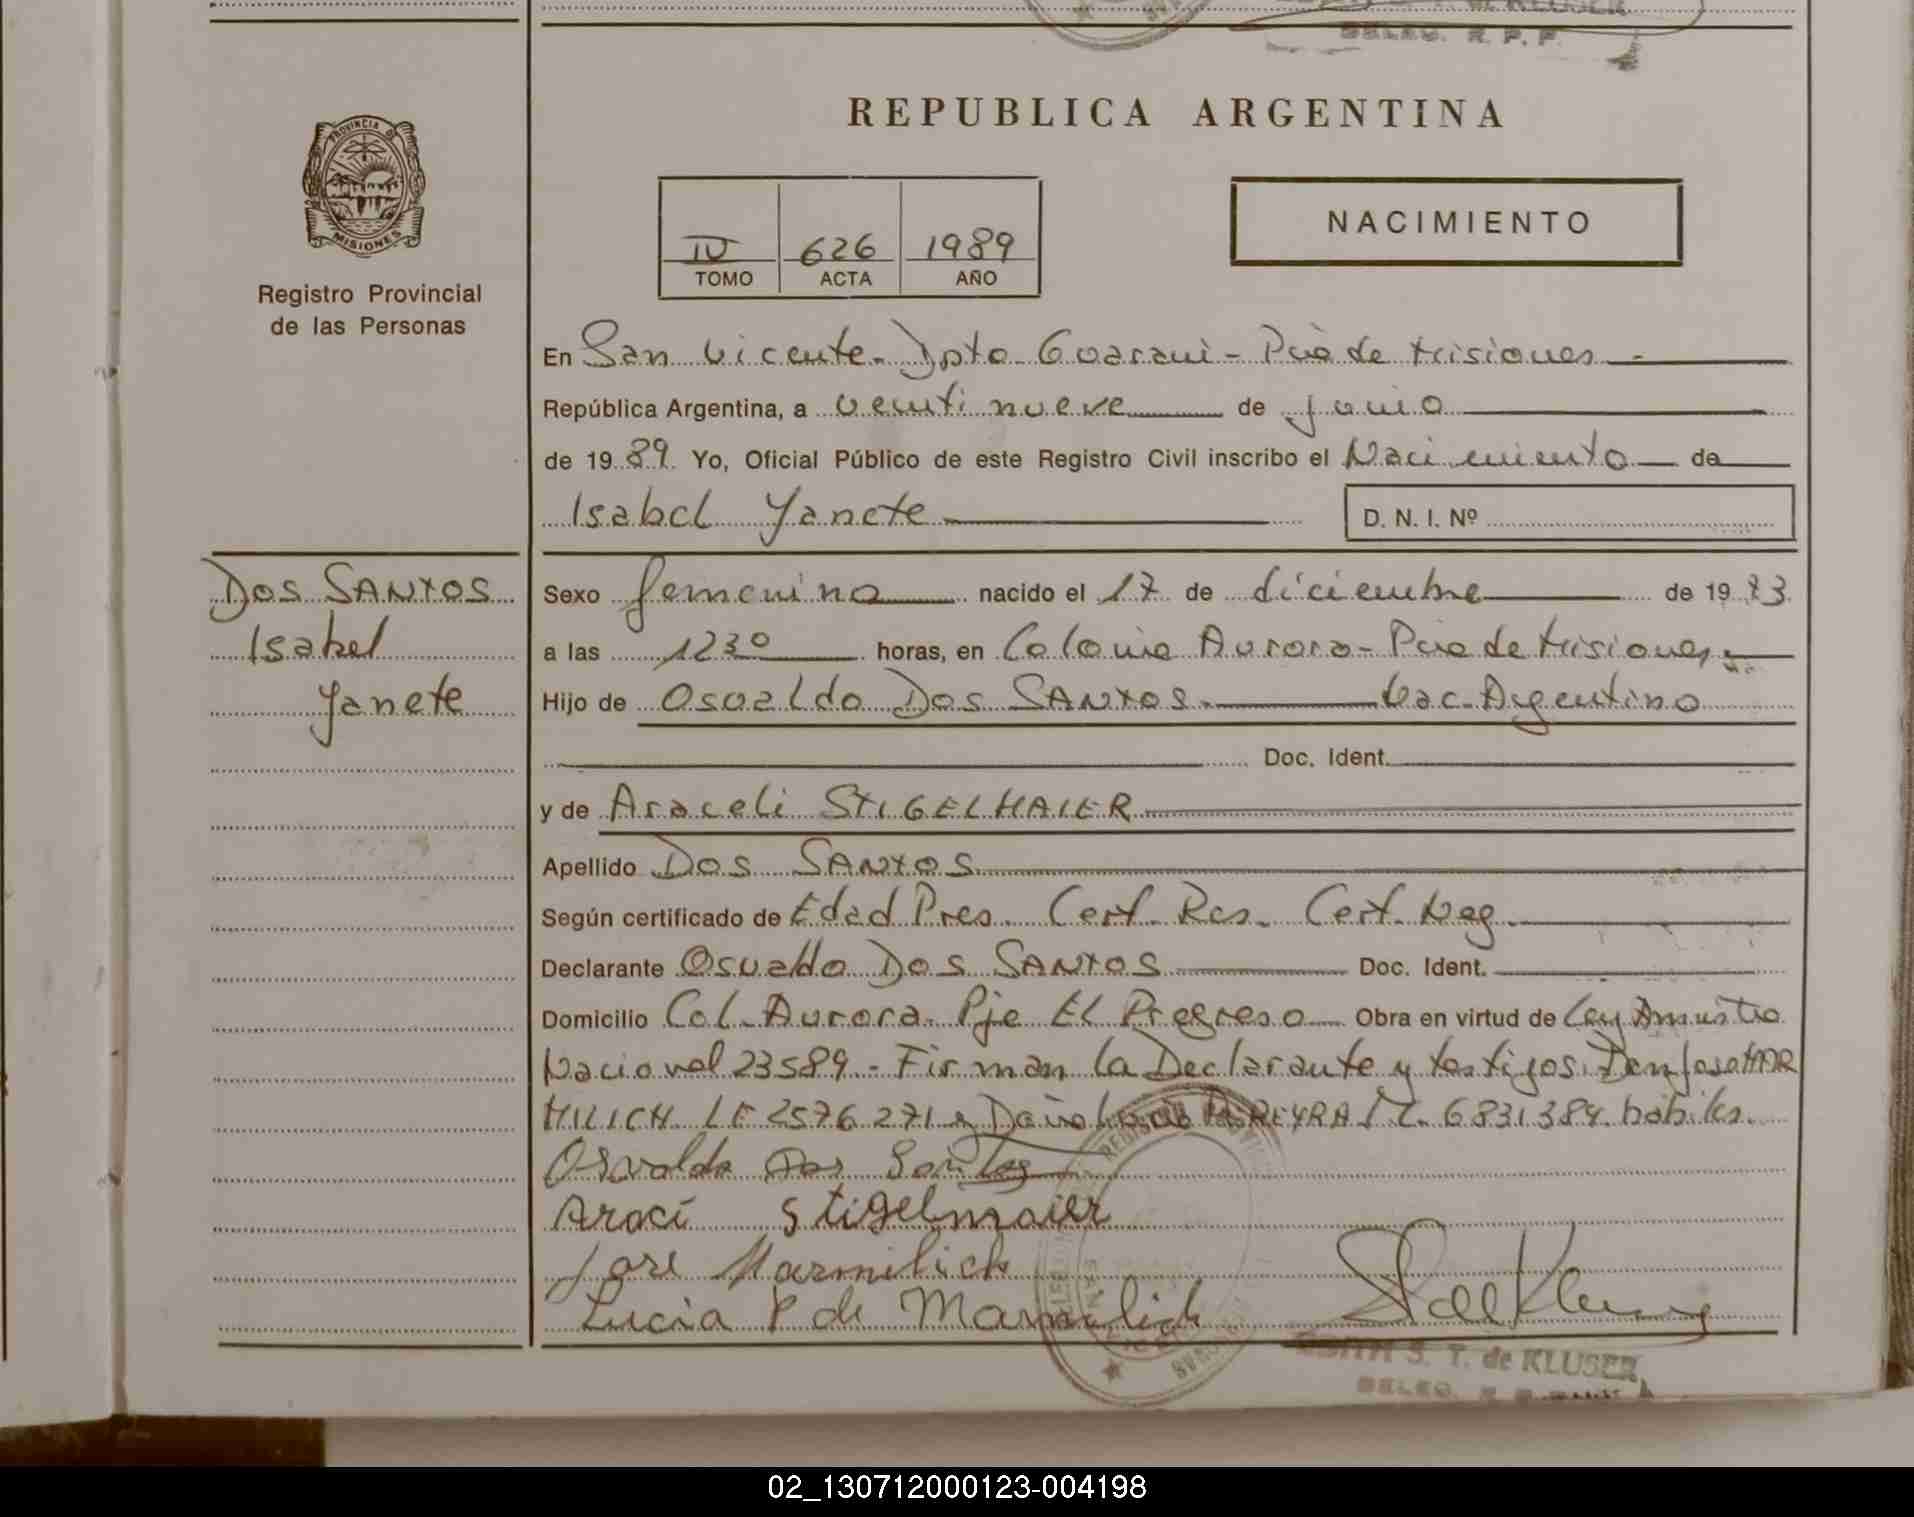 S. T. de KLUSER
DELEG. R. P. P.
PROVINCIA DE
MISIONES
Registro Provincial
de las Personas
REPUBLICA ARGENTINA
NACIMIENTO
IV 626 1989
TOMO ACTA AÑO
En San Vicente - Dpto Guarani - Pcia de Misiones
República Argentina, a veinti nueve de junio
de 1989 Yo, Oficial Público de este Registro Civil inscribo el Nacimiento de
Isabel Yanete D. N. I. Nº
DOS SANTOS
Isabel
Yanete
Sexo femenino nacido el 17 de diciembre de 19
a las 12 30 horas, en Colonia Aurora - Pcia de Misiones
Hijo de Osvaldo DOS SANTOS. Nac. Argentino
Doc. Ident.
y de Araceli STIGELMAIER
Apellido DOS SANTOS
Según certificado de Edad Pres. Cert. Res. Cert. Neg.
Declarante Osvaldo DOS SANTOS Doc. Ident.
Domicilio Col. Aurora - Pje El Progreso Obra en virtud de Ley Amnistia
Nacional 23589 - Firman la Declarante y testigos: Don Jose MAR
MILICH LE 2576 271 y Doña Lucia PEREYRA 6831384 hábiles.
Osvaldo Dos Santos
Araci Stigelmaier
Jose Marmilich
Lucia P de Marmilich
EDITH S. T. de KLUSER
DELEG.
02_130712000123-004198